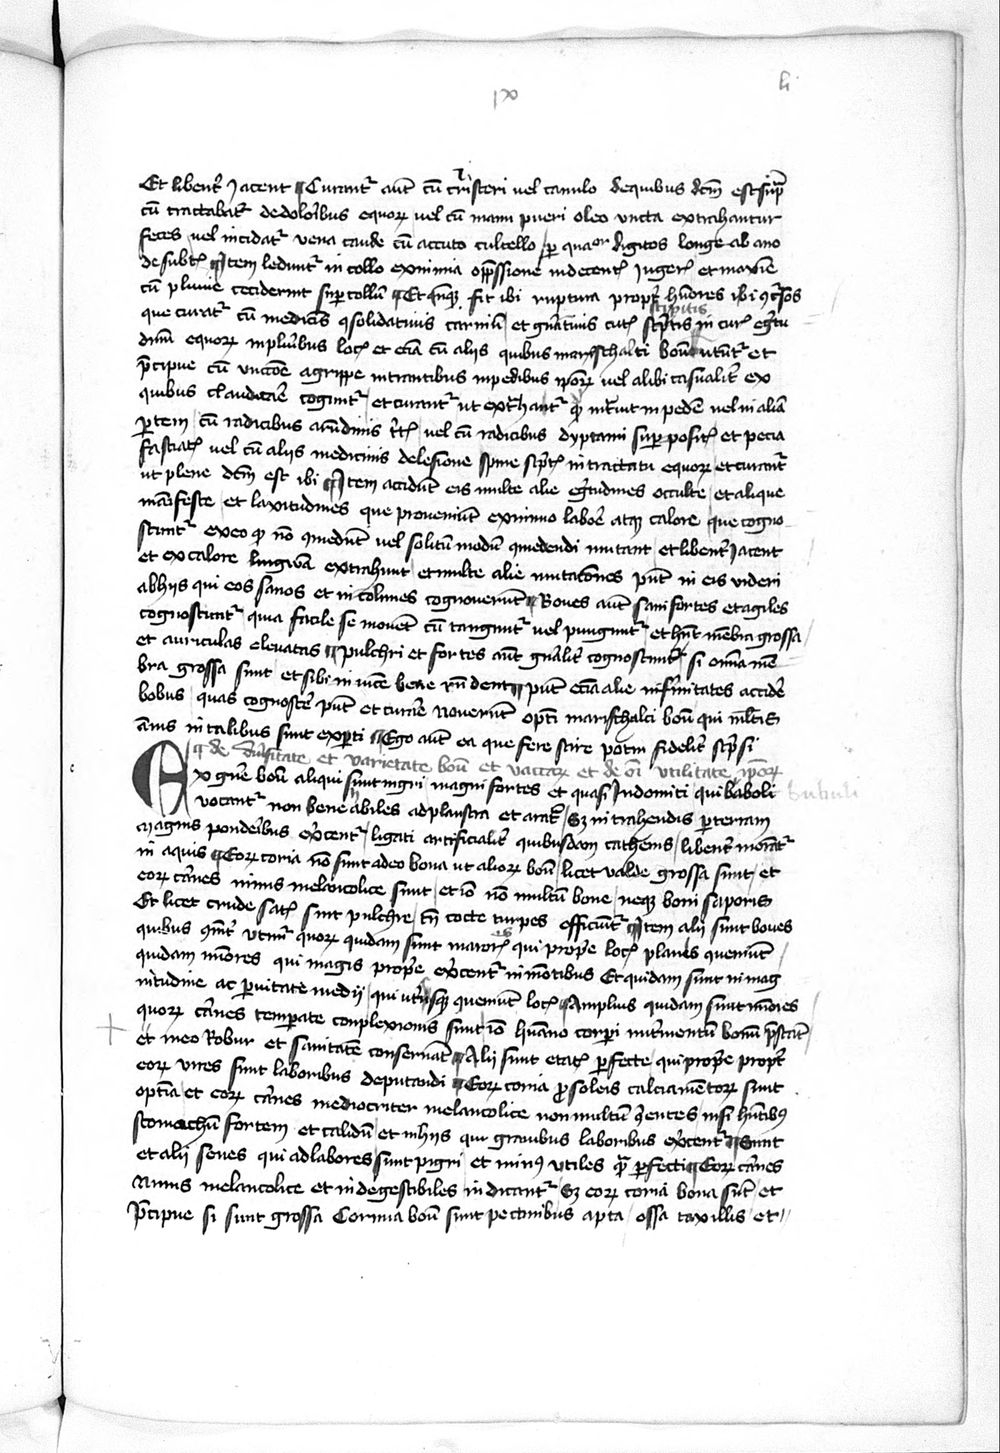 Et libenter Jacent Curant aut cu cristeri vel canulo de quibus dcm est supra
cu tractabat de doloribus equor vel cu manu pueri oleo uncta extrahantur
feces vel incidat vena caude cu accuto cultello per quatuor digitos longe ab ano
de subt Item ledunt in collo ex nimia oppressione indecent Juger et maxie
cu pluvie ceciderint super collum Et quandoque fit ibi ruptura propter humores ibi
que curat cu medicis consolidativis carnium et generativis cut scriptis in cur egritu
dinu equor in pluribus loc et ecia cu aliis quibus marischalci bou utunt et
precipue cu unccoe agrippe intrantibus in pedibus ipor vel alibi casualiter ex
quibus claudicare cogunt et curant ut extrahant quod intravit in pede vel in alia
partem cu radicibus arudinis vel cu radicibus dyptami superposit et pecia
fasciat vel cu aliis medicinis de lesione spine script in tractatu equor et curant
ut plene dcm est ibi Item accidut eis multe alie egritudines occulte et alique
manifeste et laxitudines que proveniut ex nimio labore atque calore que cogno
scunt ex eo quod no comedut vel solitu modu comedendi mutant et libenter Jacent
et ex calore linguam extrahunt et multe alie mutacones put in eis videri
ab hiis qui eos sanos et incolumes cognoverut Boves aut sani fortes et agiles
cognoscunt quia facile se movet cu tangunt vel pungunt et hnt mebra grossa
et auriculas elevatas pulchri et fortes aut gnaliter cognoscunt si omia me
bra grossa sunt et sibi invice bene rndent put ecia alie infirmitates accide
bobus quas cognosce put et curare noverut opti marischalci bou qui mltis
anis in talibus sunt experti Ego aut ea que fere scire potui fideliter scripsi
de diversitate et varietate bou et vaccar et de oi utilitate ipor
Ex gne bou aliqui sunt nigri magni fortes et quasi Indomiti qui baboli bubuli
vocant non bene abiles ad plaustra et aratr Sz in trahendis per terram
magnis ponderibus exercent ligati artificialiter quibusdam cathenis libenter morant
in aquis Eor coria no sunt adeo bona ut alior bou licet valde grossa sunt et
eor carnes nimis melancolice sunt et io no multu bone neque boni saporis
Et licet crude sat sint pulchre tn cocte turpes efficiunt Item alii sunt boves
quibus comuniter utimur quor quidam sunt maiores qui propre loc planis conveniut
quidam minores qui magis propre exercent in motibus Et quidam sunt in mag
nitudine ac parvitate medii qui utrisque conveniut loc Amplius quidam sunt iuniores
quor carnes temperate complexionis sunt io humano corpori nutrimentu bonu prestat
et in eo Robur et sanitate conservat Alii sunt etat perfecte qui propre propter
eor vires sunt laboribus deputandi Eor coria pro soleis calciamentor sunt
optia et eor carnes mediocriter melancolice non multu nisi habentibus
stomachu fortem et calidu et in hiis qui gravibus laboribus exercent Sunt
et alii senes qui ad labores sunt pigri et minus utiles quam perfecti Eor carnes
nimis melancolice et indegestibiles indicant Sz eor coria bona sut et
precipue si sunt grossa Cornua bou sunt pectinibus apta ossa taxillis et